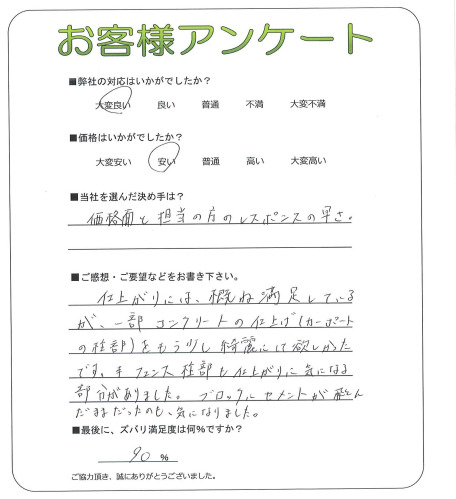 お客様アンケート
■弊社の対応はいかがでしたか？
大変良い 良い 普通 不満 大変不満
■価格はいかがでしたか？
大変安い 安い 普通 高い 大変高い
■当社を選んだ決め手は？
価格面と担当の方のレスポンスの早さ。
■ご感想・ご要望などをお書き下さい。
仕上がりには、概ね満足している
が、一部コンクリートの仕上げ(カーポート
の柱部)をもう少し綺麗にして欲しかった
です。 フェンス柱部も仕上がりに気になる
部分がありました。ブロックにセメントが飛んで
だままだったのも、気になりました。
■最後に、ズバリ満足度は何%ですか？
90 %
ご協力頂き、誠にありがとうございました。